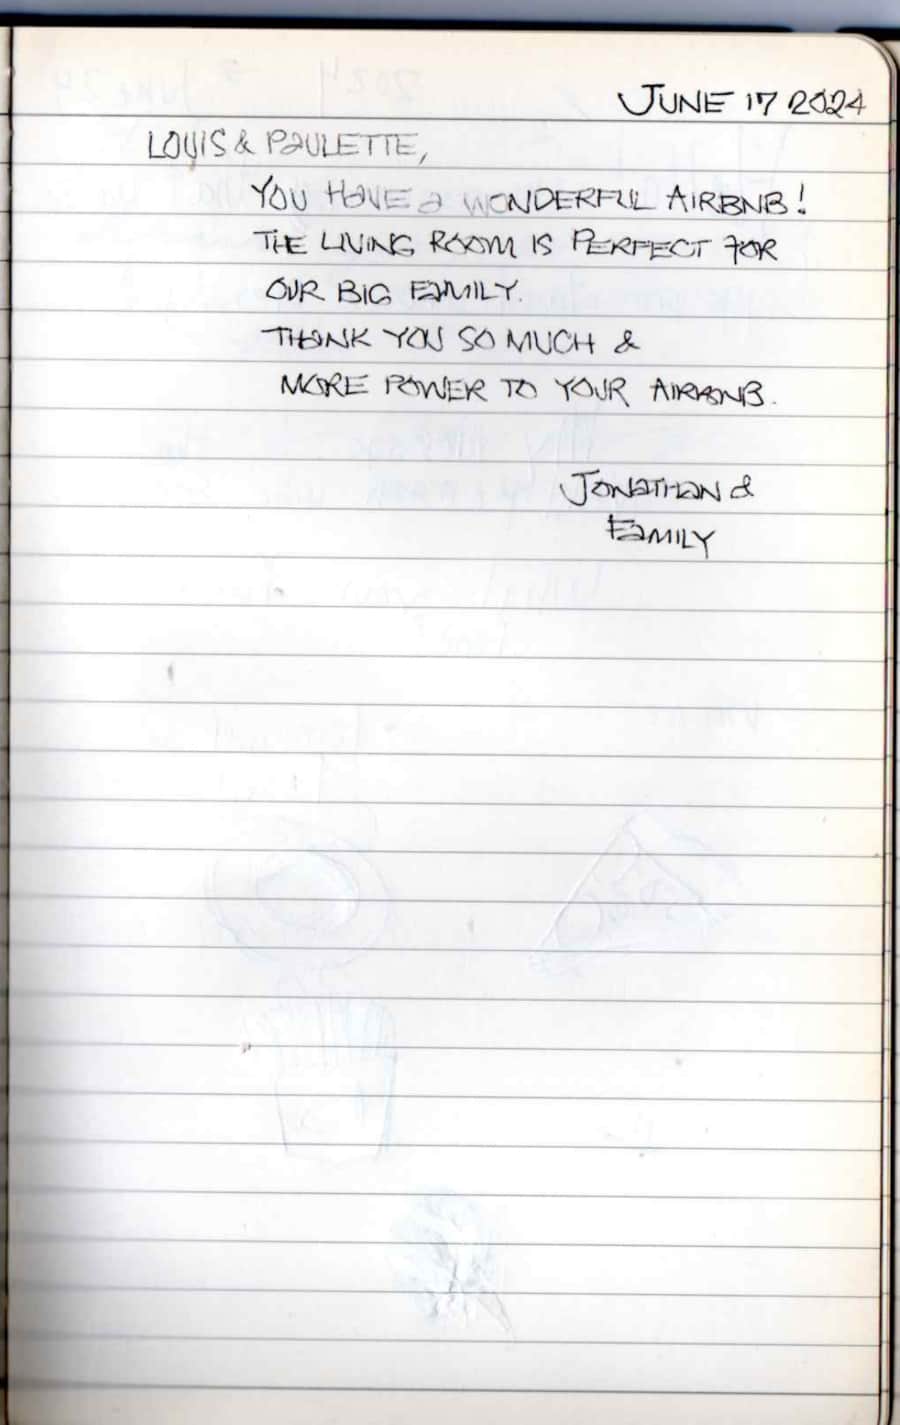 JUNE 17 2024
LOUIS & PAULETTE,
YOU HAVE a WONDERFUL AIRBNB!
THE LIVING ROOM IS PERFECT FOR
OUR BIG FAMILY.
THANK YOU SO MUCH &
MORE POWER TO YOUR AIRBNB.
JONATHAN &
FAMILY